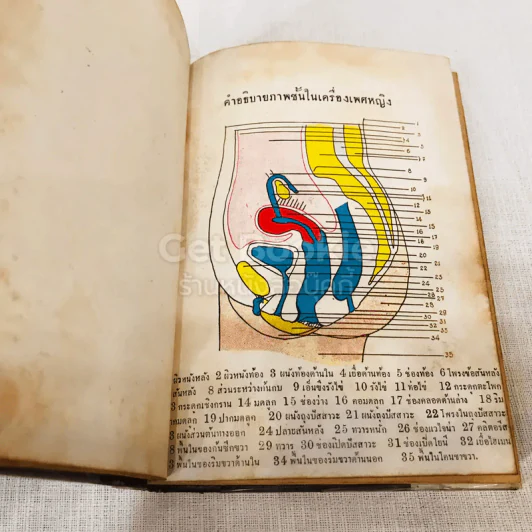 คำอธิบายภาพซั้นในเครื่องเพศหญิง
Get Bookie
ร้านหนังสือเก็ตบุ๊คกี้
ผิวหนังหลัง 2 ผิวหนังท้อง 3 ผนังท้องด้านใน 4 เยื่อด้านท้อง 5 ช่องท้อง 6 โพรงข้อสันหลัง
สันหลัง 8 ส่วนระหว่างก้นกบ 9 เอ็นขึงรังไข่ 10 รังไข่ 11 ท่อไข่ 12 กระดูกตะโพก
3 กระดูกเชิงกราน 14 มดลูก 15 ช่องว่าง 16 คอมดลูก 17 ช่องคลอดด้านล่าง 18 ริม
คมดลูก 19 ปากมดลูก 20 ผนังถุงปัสสาวะ 21 ผนังถุงปัสสาวะ 22 โพรงในถุงปัสสาวะ
ผนังส่วนต้นทางออก 24 ปลายสันหลัง 25 ทวารหนัก 26 ช่องแวไยน่า 27 คลิตอริส
8 พื้นในของก้นซีกขวา 29 ทวาร 30 ช่องเปิดปัสสาวะ 31 ช่องเปิดโยนี 32 เยื่อไฮเมน
3 พื้นในของริมขวาด้านใน 34 พื้นในของริมขวาด้านนอก 35 พื้นในโคนขาขวา